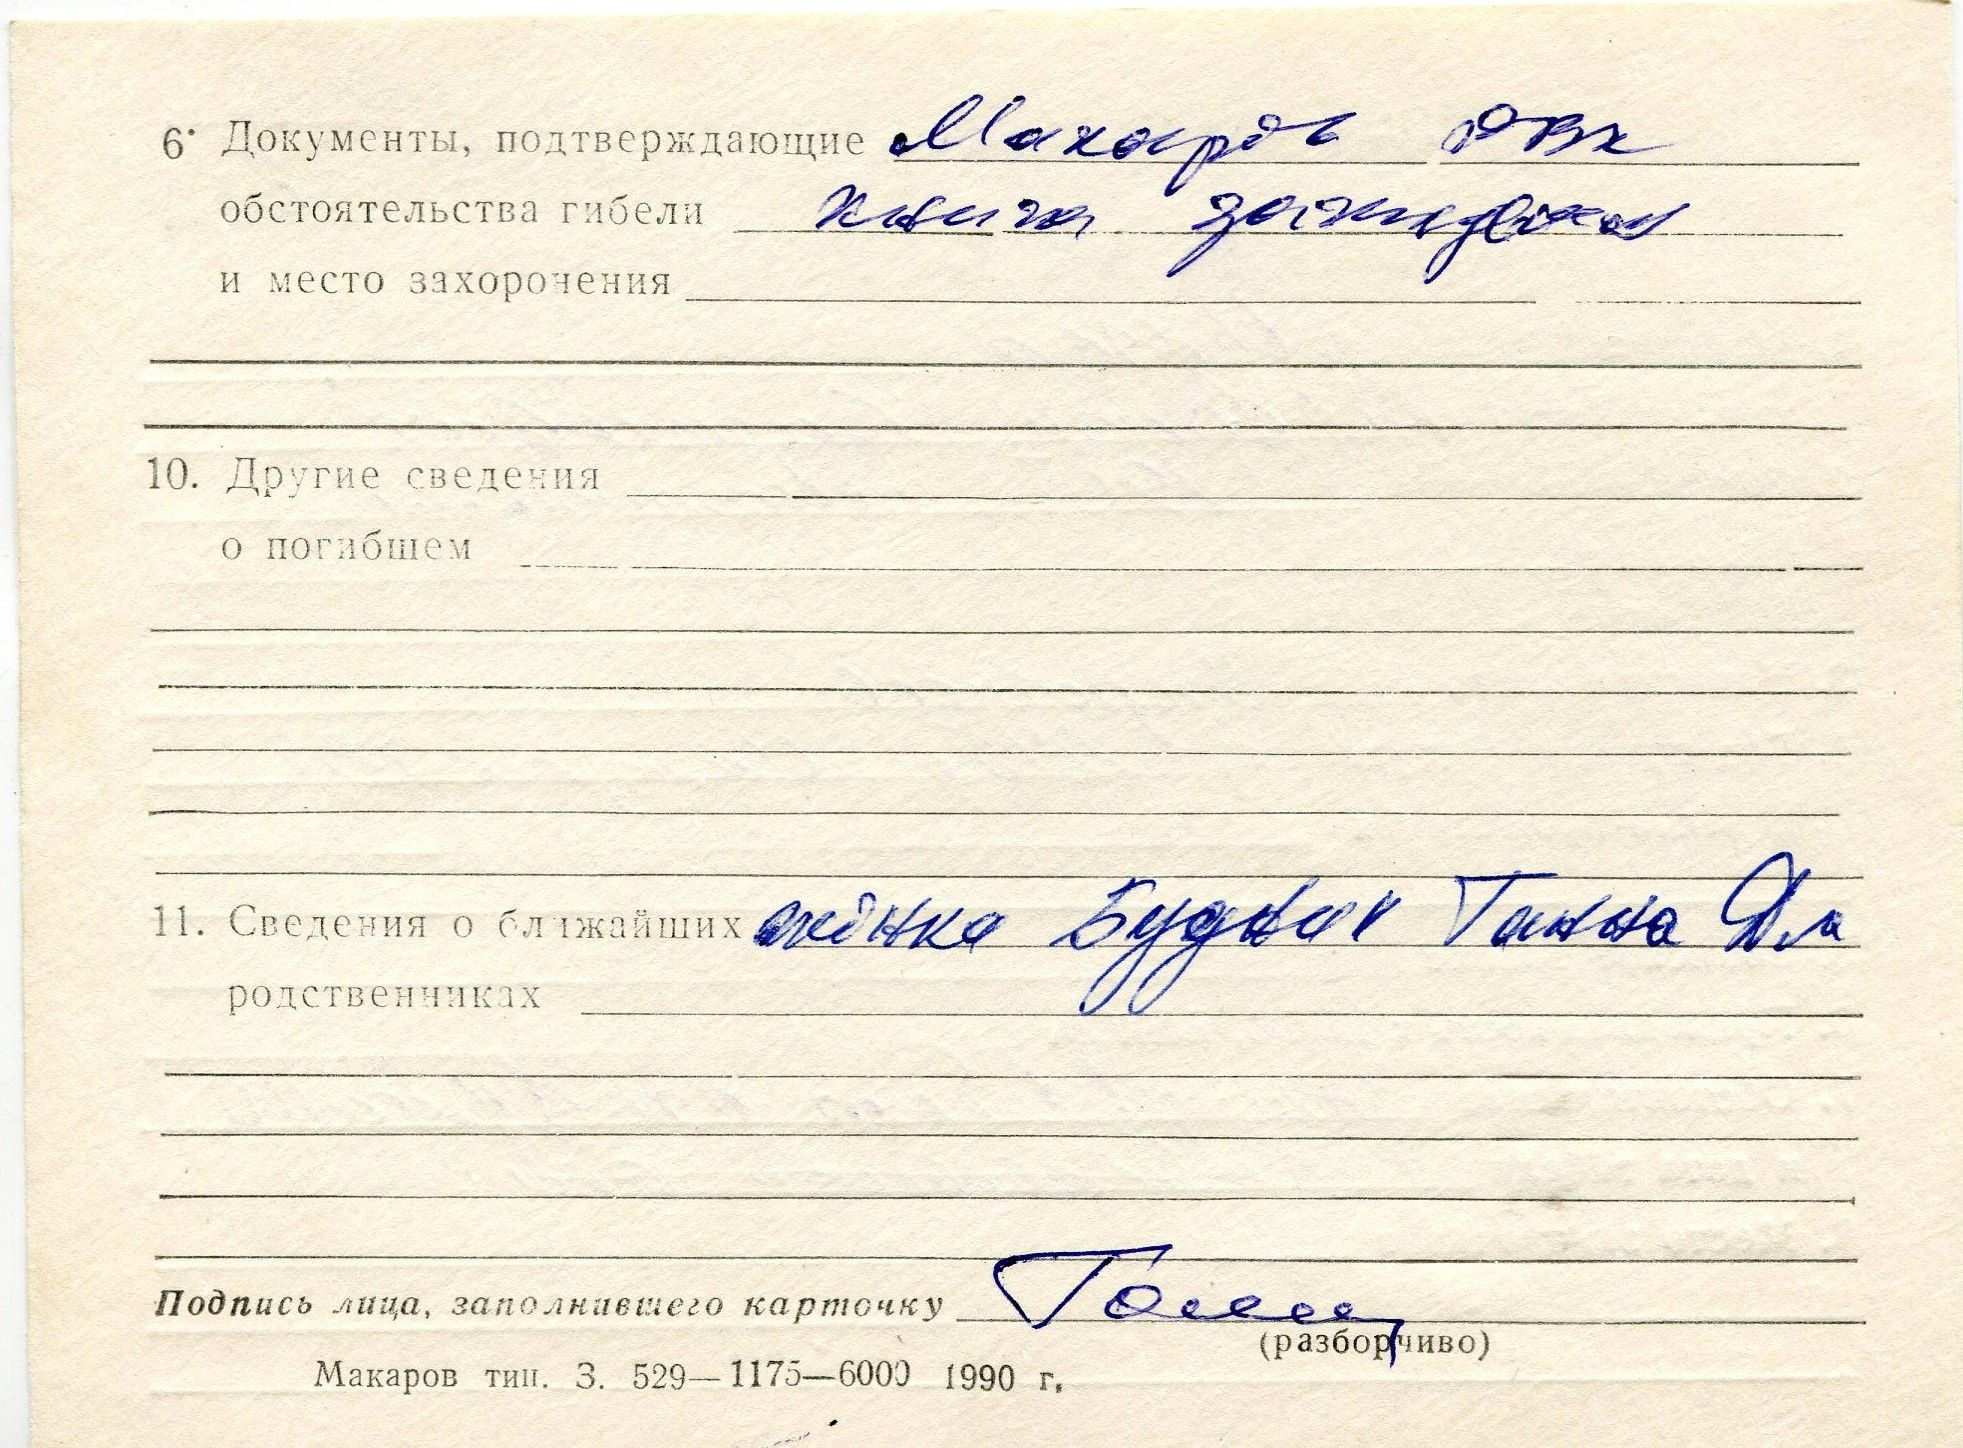 6. Документы, подтверждающие Макарів РВк
обстоятельства гибели книга
и место захоронения
10. Другие сведения
о погибшем
11. Сведения о ближайших жінка Будник Ганна
родственниках
Подпись лица, заполнившего карточку
(разборчиво)
Макаров тип. З. 529—1175—6000 1990 г.